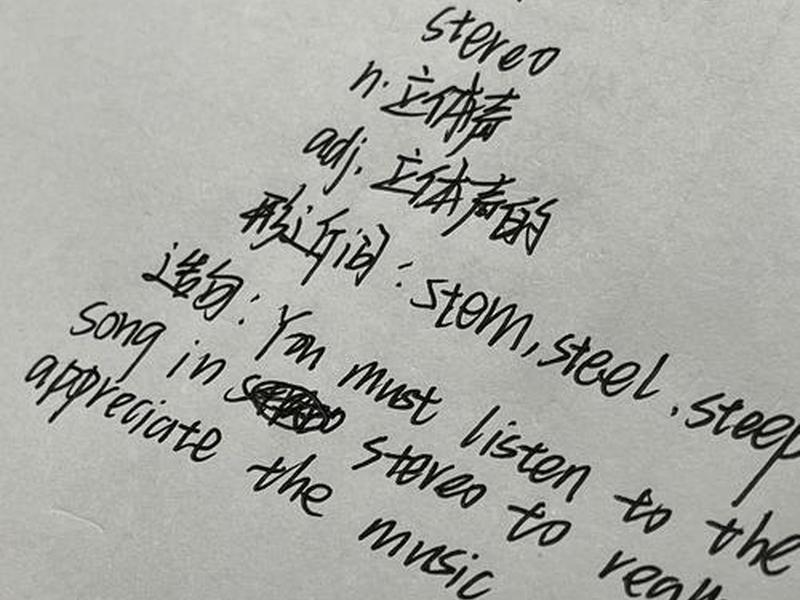 stereo
n. 立体声
adj. 立体声的
形近词: stem, steel, steep
造句: You must listen to the
song in stereo to really
appreciate the music